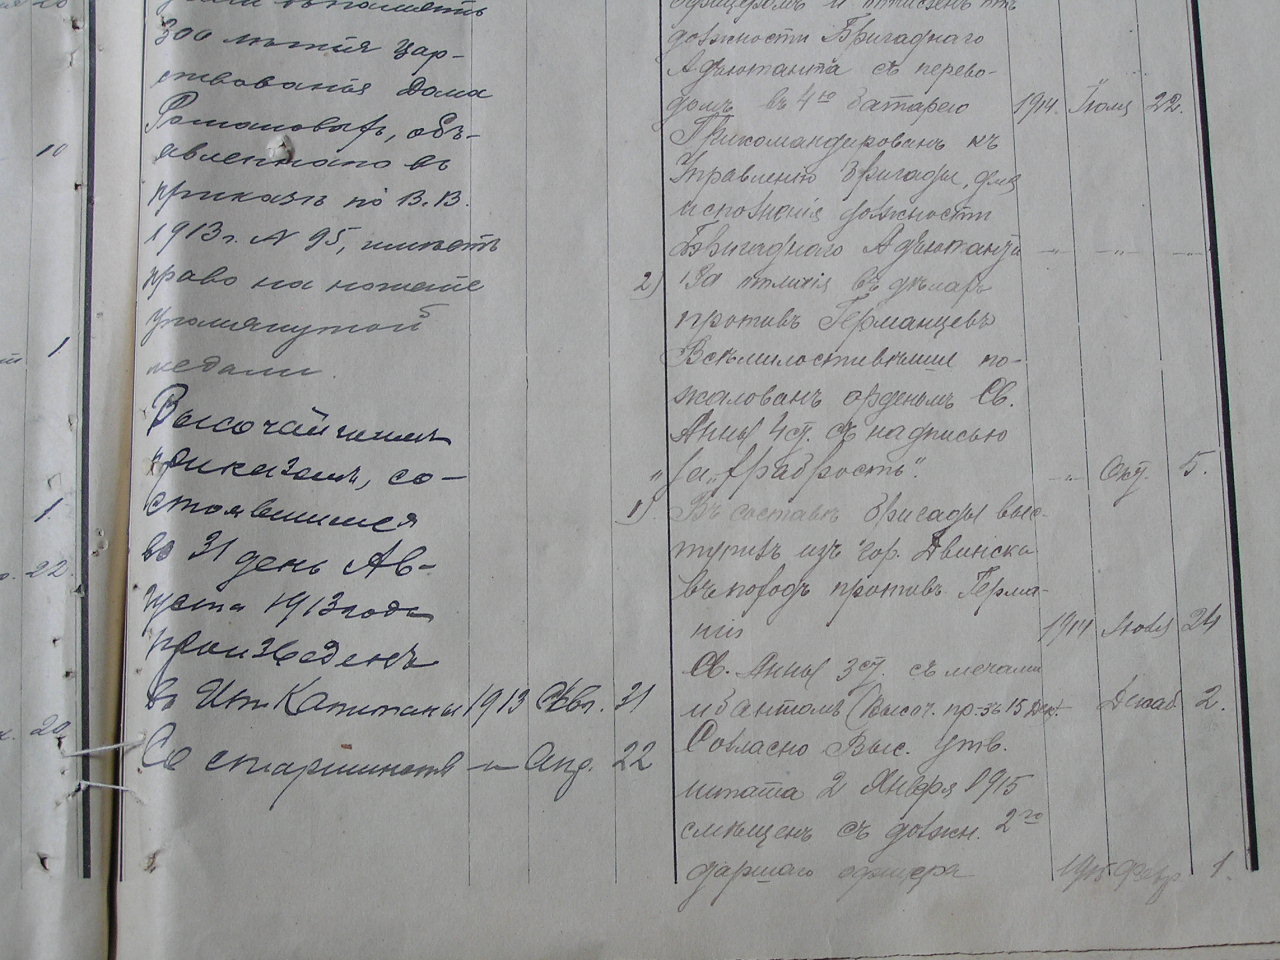 10
1
1.
22.
20
300 лѣтія Цар-
ствованія Дома
Романовыхъ, объ-
явленнаго въ
приказѣ по В.В.
1913 г. N 95, имѣетъ
право на ношеніе
упомянутой
медали.
Высочайшимъ
приказомъ, со-
стоявшимся
въ 31 день Ав-
густа 1913 года
произведенъ
въ Шт. Капитаны 1913 Авг. 31
Со старшинств. -„- Апр. 22
должности Бригаднаго
Адъютанта съ перево-
домъ въ 4ю батарею 1914. Іюля 22.
Прикомандированъ къ
Управленію бригады, для
исполненія должности
Бригаднаго Адъютанта -„- -„- -„-
2) За отличія въ дѣлахъ
противъ Германцевъ
Всемилостивѣйше по-
жалованъ орденомъ Св.
Анны 4 ст. съ надписью
„За „храбрость". -„- Окт. 5.
1) Въ составѣ бригады выс-
тупилъ изъ гор. Двинска
въ походъ противъ Герма-
ніи 1914 Іюля 24
Св. Анны 3 ст. съ мечами
и бантомъ (Высоч. пр-зъ 15 Дек. Декаб 2.
Согласно Выс. утв.
штата 2 Января 1915
смѣщенъ съ должн. 2го
старшаго офицера 1915 Февр. 1.